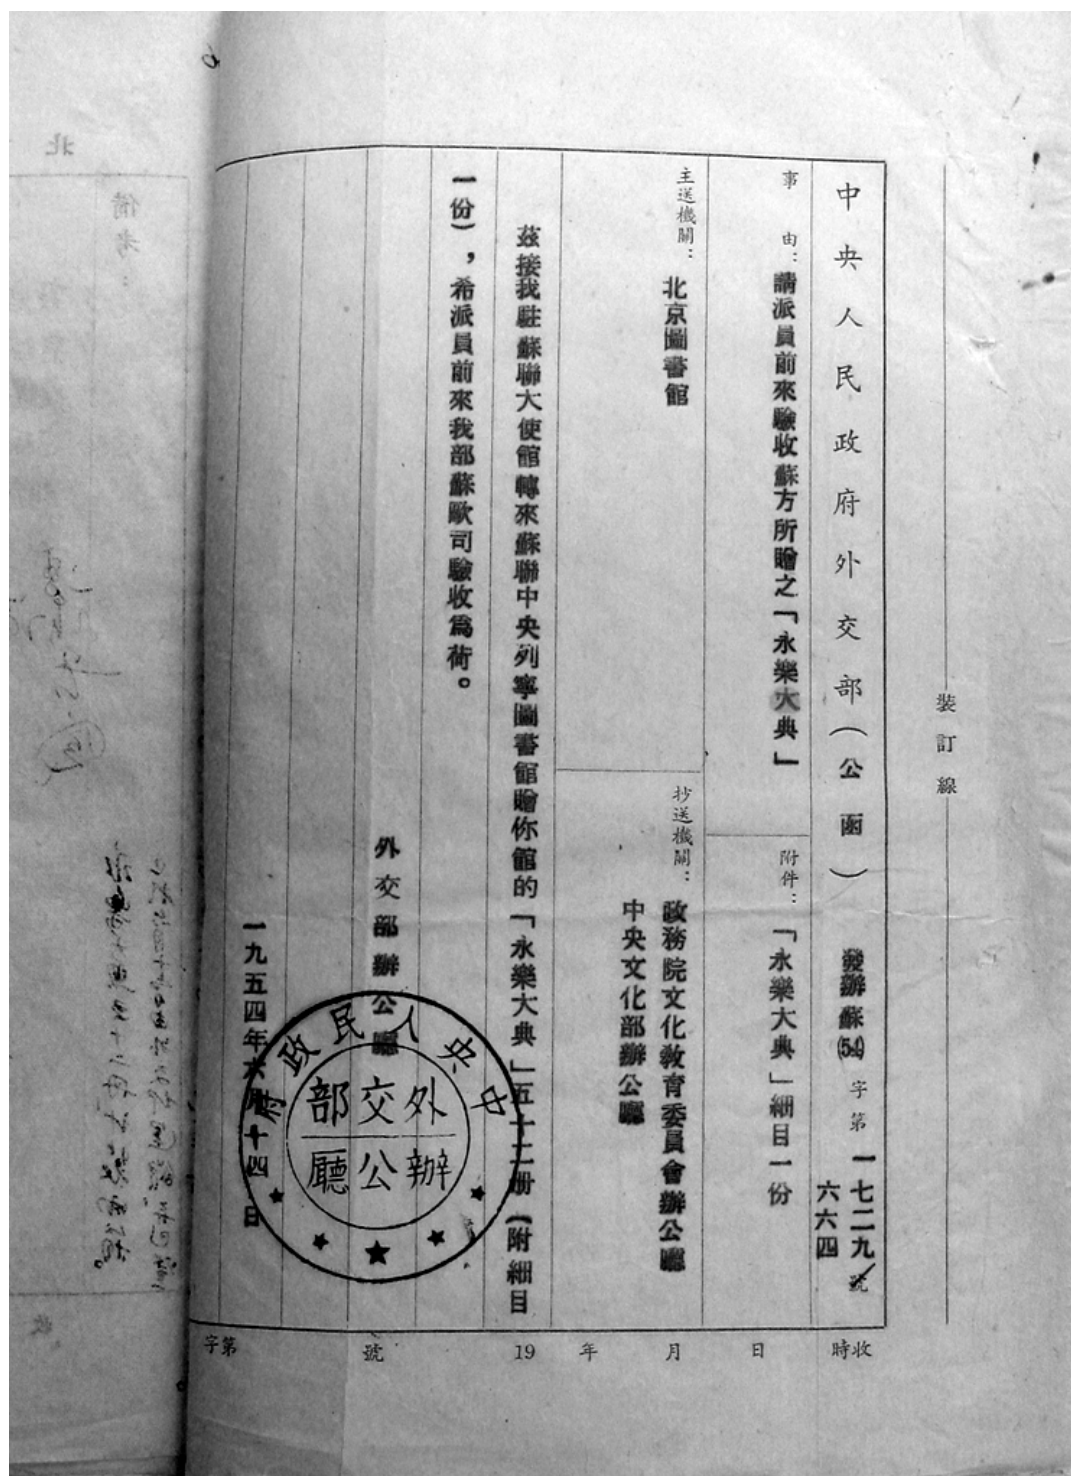 裝訂線
中央人民政府外交部(公函)
發辦蘇(54)字第一七二九/號
六六四
事由：請派員前來驗收蘇方所贈之「永樂大典」
附件：「永樂大典」細目一份
主送機關：北京圖書館
抄送機關：政務院文化敎育委員會辦公廳
中央文化部辦公廳
茲接我駐蘇聯大使館轉來蘇聯中央列寧圖書館贈你館的「永樂大典」五十二册(附細目
一份)，希派員前來我部蘇歐司驗收爲荷。
外交部辦公廳
一九五四年六月十四日
中央人民政府
外交部
辦公廳
收時
日
月
年
19
號
字第